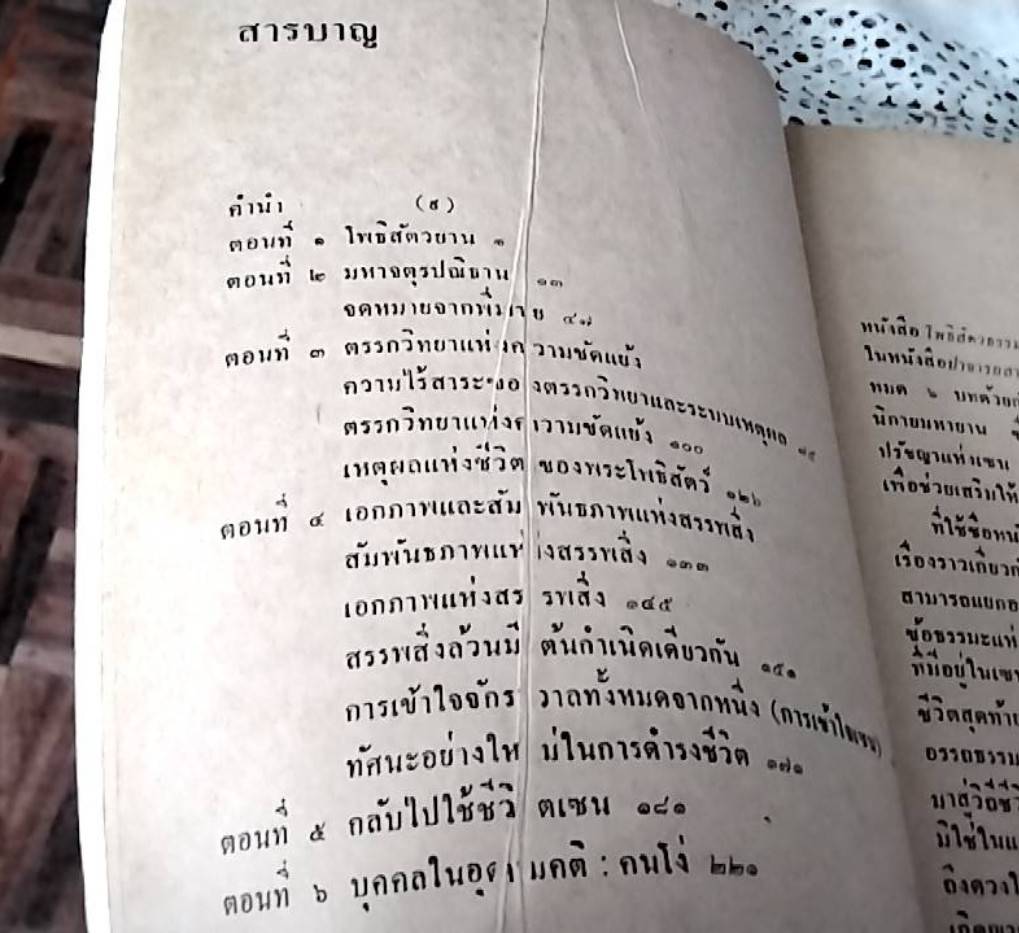 สารบาญ
คำนำ (๙)
ตอนที่ ๑ โพธิสัตวยาน ๑
ตอนที่ ๒ มหาจตุรปณิธาน ๑๓
จดหมายจากพี่ชาย ๔๗
ตอนที่ ๓ ตรรกวิทยาแห่งความขัดแย้ง
ความไร้สาระของตรรกวิทยาและระบบเหตุผล
ตรรกวิทยาแห่งความขัดแย้ง ๑๐๐
เหตุผลแห่งชีวิตของพระโพธิสัตว์ ๑๒๖
ตอนที่ ๔ เอกภาพและสัมพันธภาพแห่งสรรพสิ่ง
สัมพันธภาพแห่งสรรพสิ่ง ๑๓๓
เอกภาพแห่งสรรพสิ่ง ๑๔๕
สรรพสิ่งล้วนมีต้นกำเนิดเดียวกัน ๑๕๑
การเข้าใจจักรวาลทั้งหมดจากหนึ่ง (การเข้าใจเซน)
ทัศนะอย่างใหม่ในการดำรงชีวิต ๑๗๑
ตอนที่ ๕ กลับไปใช้ชีวิตเซน ๑๘๑
ตอนที่ ๖ บุคคลในอุดมคติ : คนโง่ ๒๒๑
หนังสือ โพธิสัตวธรรม
ในหนังสือปาจารยสาร
หมด ๖ บทด้วยกัน
นิกายมหายาน
ปรัชญาแห่งเซน
เพื่อช่วยเสริมให้
ที่ใช้ชื่อหนั
เรื่องราวเกี่ยวกั
สามารถแยกออ
ข้อธรรมะแห่
ที่มีอยู่ในเซน
ชีวิตสุดท้าย
อรรถธรรม
มาสู่วิถีชีวิ
มิใช่ในแ
ถึงดวงใ